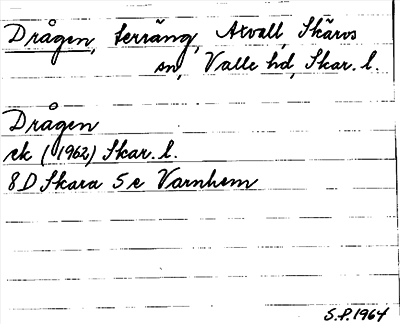 Drågen, terräng, Axvall, Skärvs
sn, Valle hd, Skar. l.
Drågen
ek (1962) Skar. l.
8D Skara 5e Varnhem
S.P. 1964